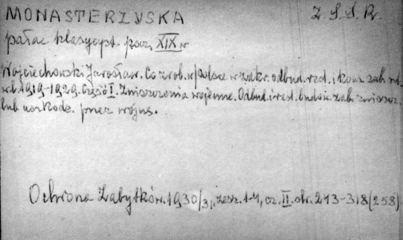 MONASTERZYSKA Z.S.S.R.
pałac klasycyst. pocz. XIX w
Wojciechowski Jarosław. Co zrob. w Polsce w zakr. odbud. rest. i kons. zab. od
r. 1919-1929. Część I. Zniszczenia wojenne. Odbud. i rest. budow. zab. zniszcz.
lub uszkodz. przez wojnę.
Ochrona Zabytków. 1930/31, zesz. 1-4, cz. II. str. 273-318 (258)